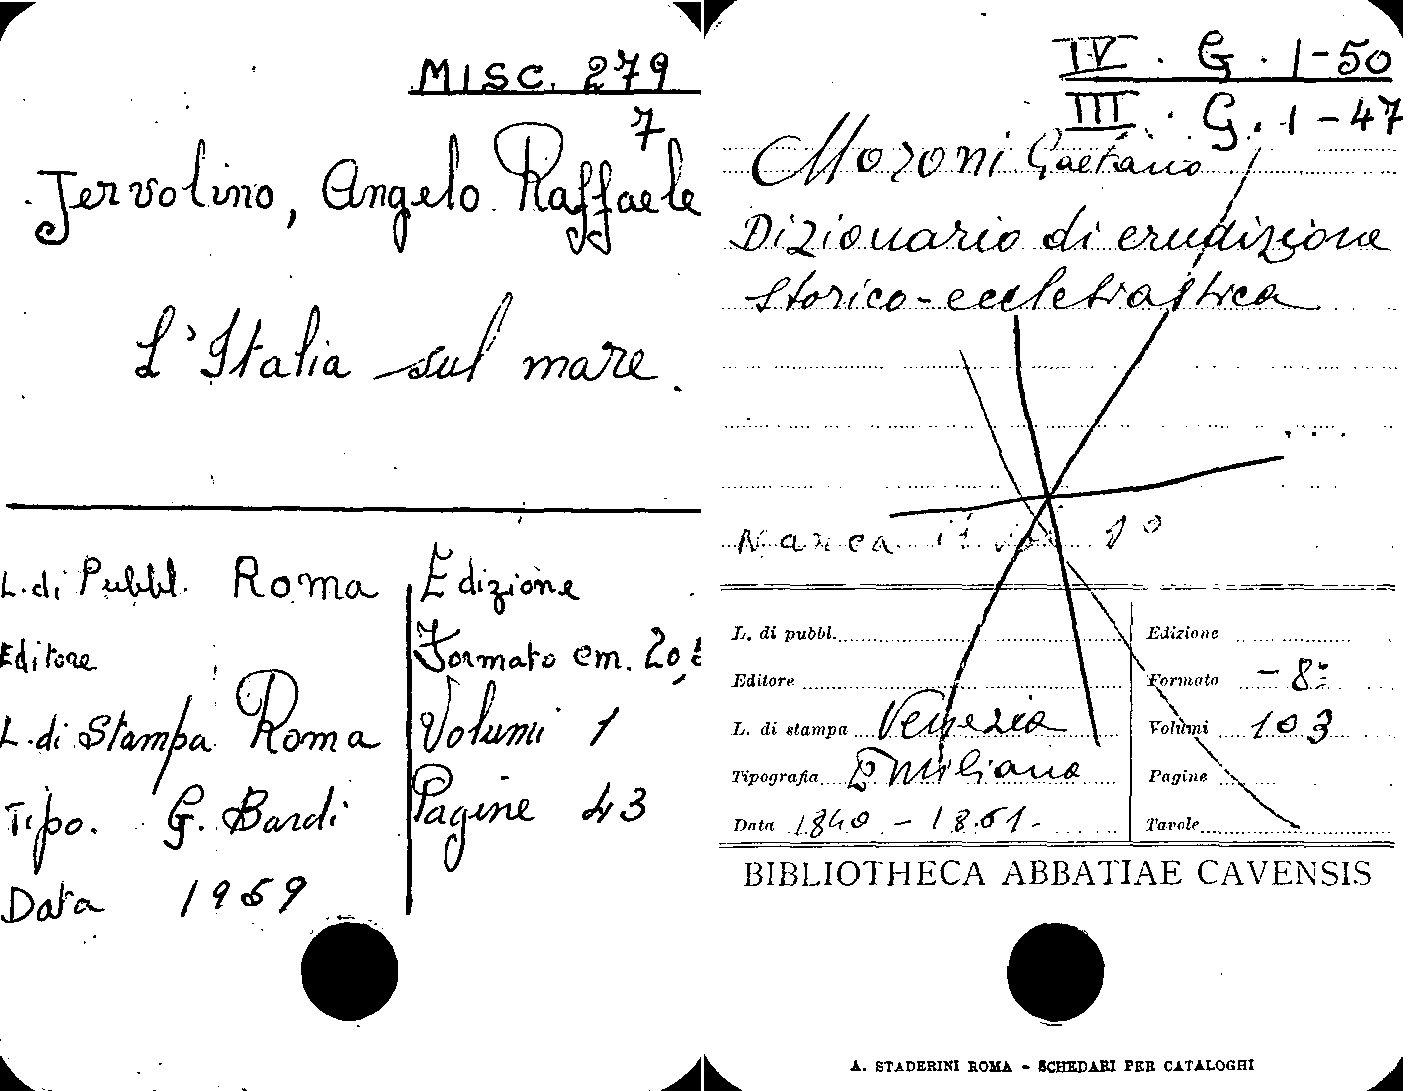 MISC. 279
7
Jervolino, Angelo Raffaele
L'Italia sul mare.
L. di Pubbl. Roma
Editore
L. di Stampa Roma
Tipo. G. Bardi
Data 1959
Edizione
Formato cm. 20,5
Volumi 1
Pagine 43
IV. G. 1-50
III. G. 1-47
Moroni Gaetano
Dizionario di erudizione
storico-ecclesiastica
Manca il vol. 1º
L. di pubbl.
Editore
L. di stampa Venezia
Tipografia Emiliana
Data 1840 - 1861.
Edizione
Formato - 8º
Volumi 103
Pagine
Tavole
BIBLIOTHECA ABBATIAE CAVENSIS
A. STADERINI ROMA - SCHEDARI PER CATALOGHI